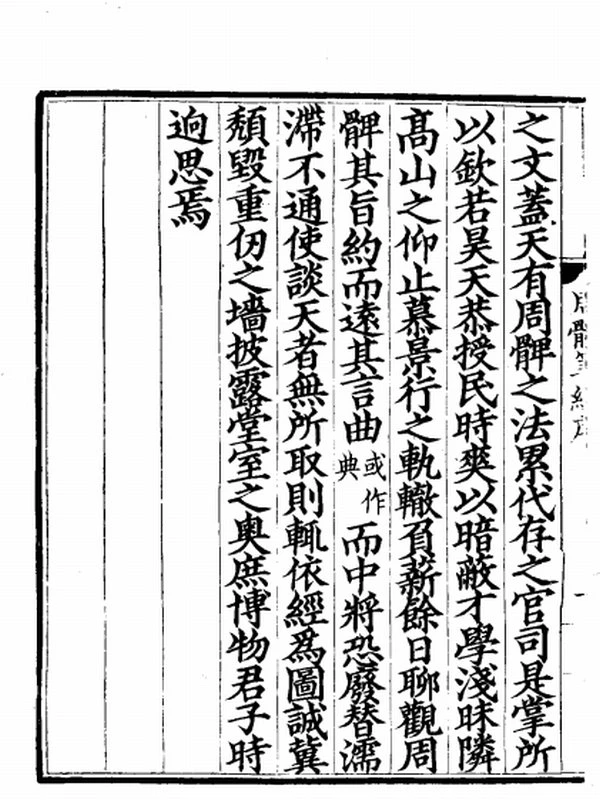 周髀筭經序
之文蓋天有周髀之法累代存之官司是掌所
以欽若昊天恭授民時爽以暗蔽才學淺昧隣
髙山之仰止慕景行之軌轍負薪餘日聊觀周
髀其旨約而遠其言曲或作典而中將恐廢替濡
滯不通使談天者無所取則輒依經爲圖誠冀
頽毀重仞之墻披露堂室之奥庶博物君子時
逈思焉